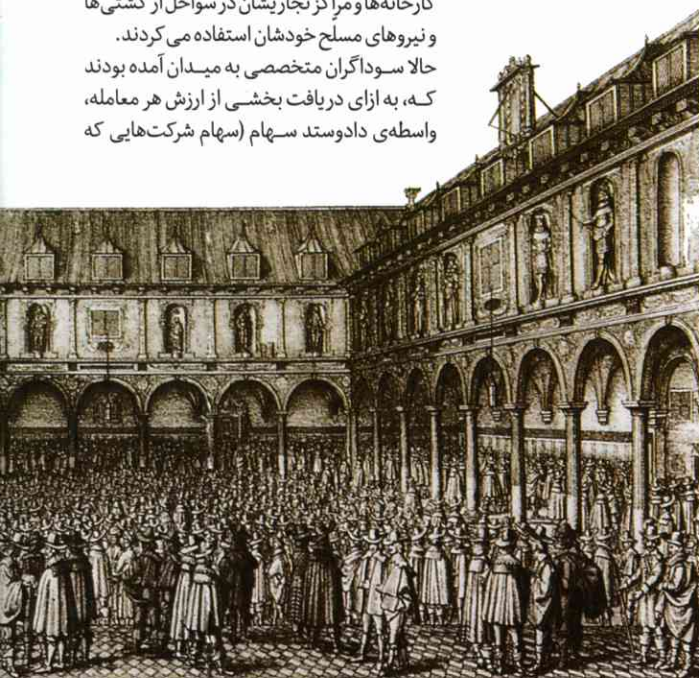 کارخانه‌ها و مراکز تجاریشان در سواحل از کشتی‌ها
و نیروهای مسلّح خودشان استفاده می‌کردند.
حالا سوداگران متخصصی به میدان آمده بودند
که، به ازای دریافت بخشی از ارزش هر معامله،
واسطه‌ی دادوستد سهام (سهام شرکت‌هایی که